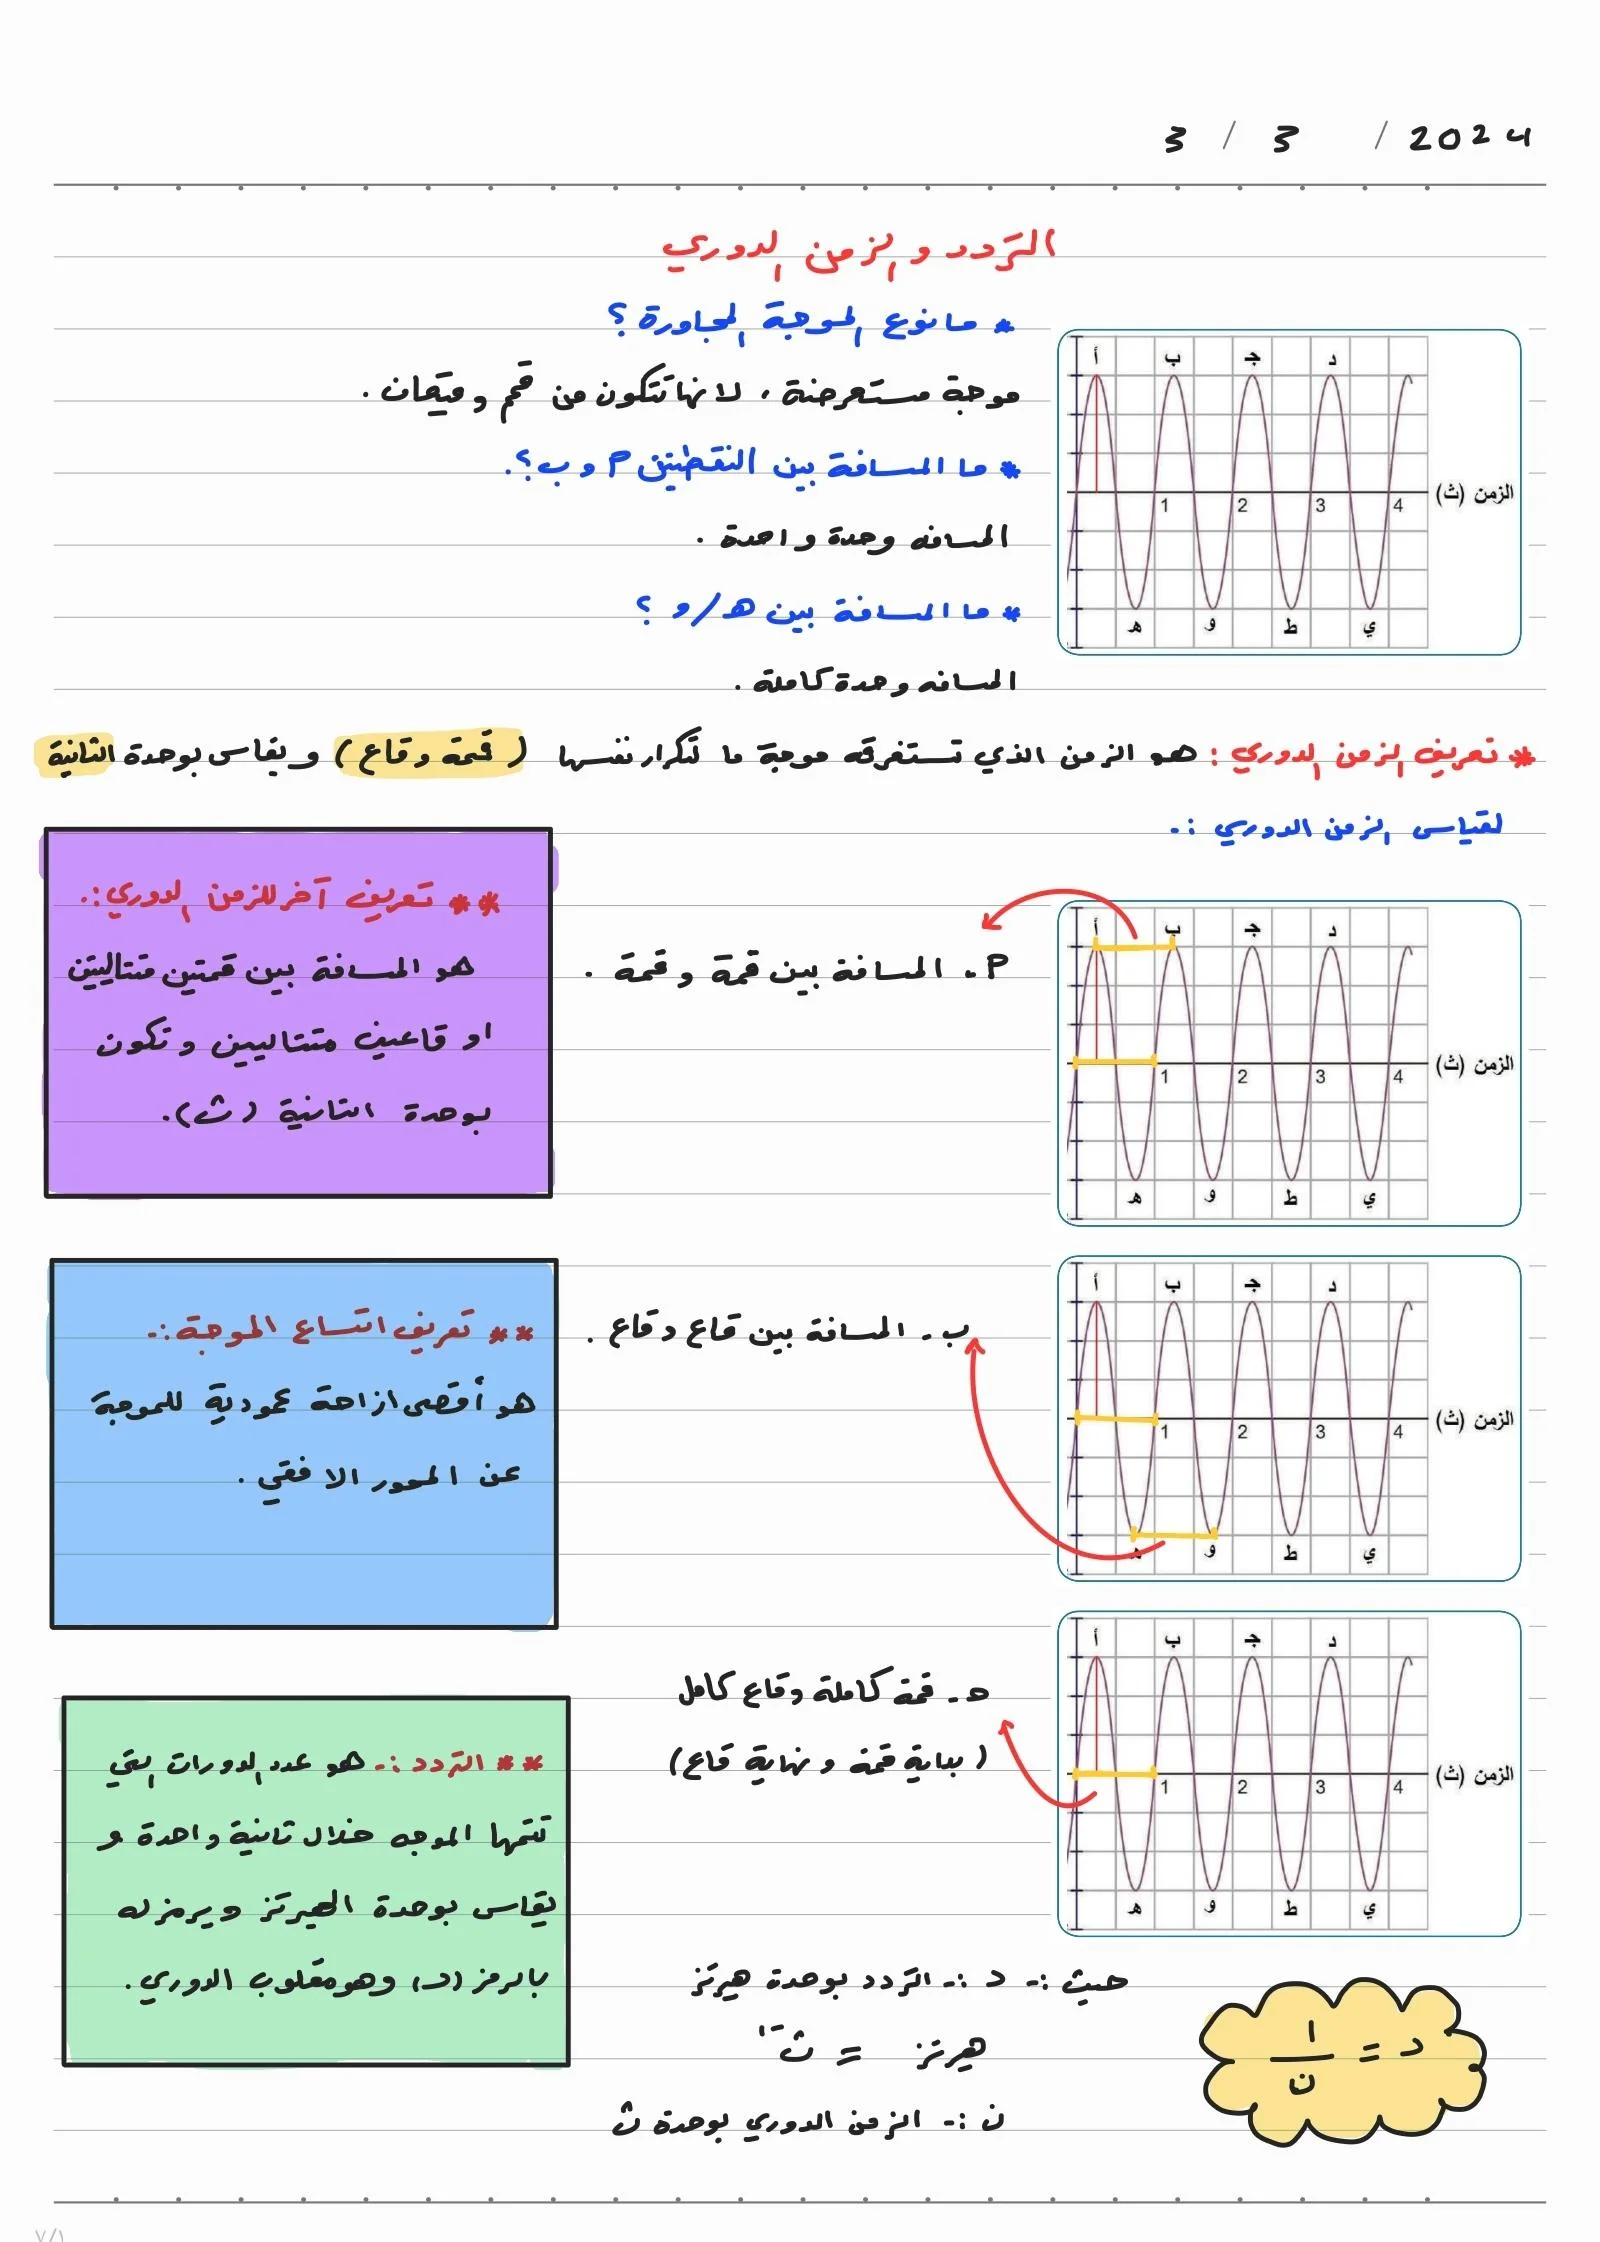 3 / 3 / 2024
التردد والزمن الدوري
* ما نوع الموجة المجاورة ؟
موجة مستعرضة ، لانها تتكون من قمم وقيعان .
* ما المسافة بين النقطتين أ و ب ؟.
المسافه وحدة واحدة .
* ما المسافة بين هـ / و ؟
المسافه وحدة كاملة .
أ ب جـ د
الزمن (ث)
1 2 3 4
هـ و ط ي
* تعريف الزمن الدوري : هو الزمن الذي تستغرقه موجة ما لتكرار نفسها ( قمة وقاع ) ويقاس بوحدة الثانية
لقياس الزمن الدوري :-
أ ب جـ د
الزمن (ث)
1 2 3 4
هـ و ط ي
أ - المسافة بين قمة وقمة .
** تعريف آخر للزمن الدوري :.
هو المسافة بين قمتين متتاليتين
او قاعين متتاليين وتكون
بوحدة الثانية (ث).
أ ب جـ د
الزمن (ث)
1 2 3 4
هـ و ط ي
ب - المسافة بين قاع وقاع .
** تعريف اتساع الموجة :-
هو أقصى ازاحة عمودية للموجة
عن المحور الافقي .
أ ب جـ د
الزمن (ث)
1 2 3 4
هـ و ط ي
حـ - قمة كاملة وقاع كامل
( بداية قمة ونهاية قاع )
** التردد :- هو عدد الدورات التي
تتمها الموجه خلال ثانية واحدة و
يقاس بوحدة الهيرتز ويرمز له
بالرمز (د) وهو مقلوب الدوري .
د = ١ / ن
حيث :- د :- التردد بوحدة هيرتز
هيرتز = ث⁻¹
ن :- الزمن الدوري بوحدة ث
٧/١